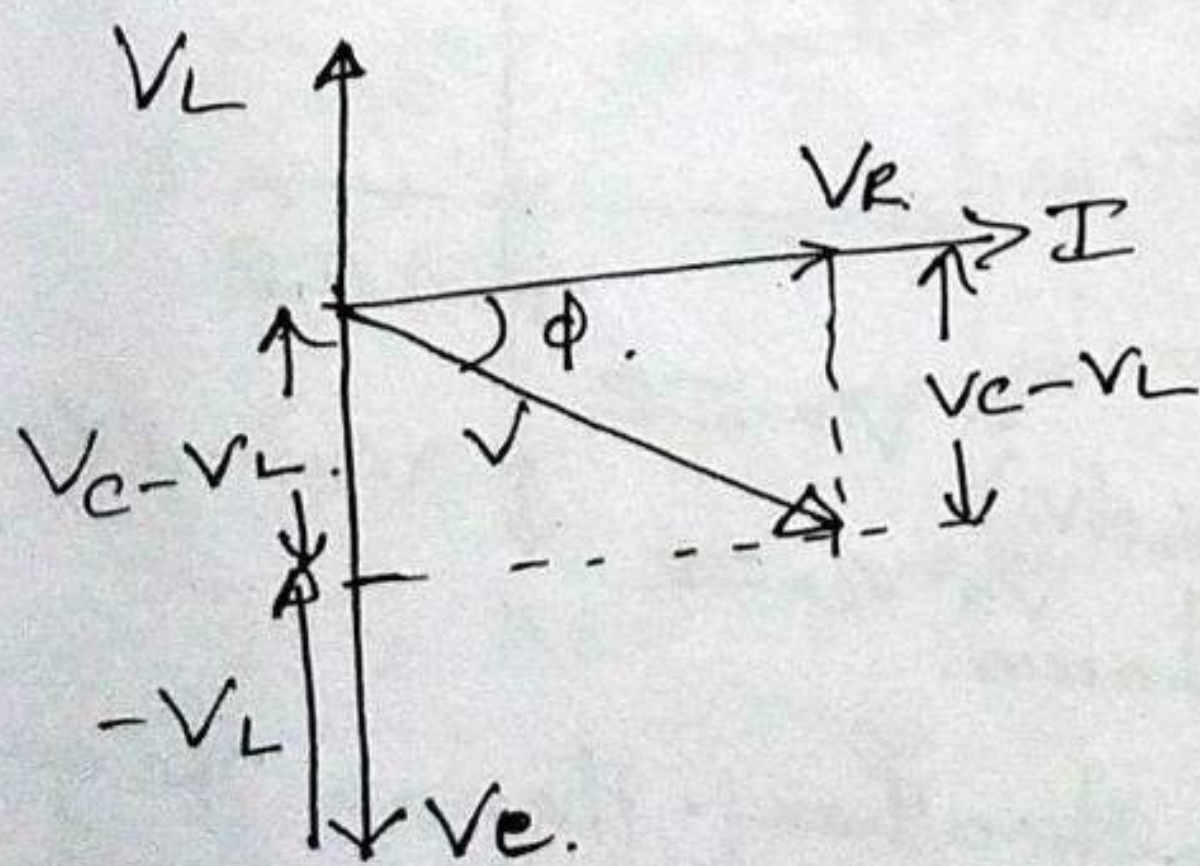 VL
VR
I
φ.
VC-VL
V
VC-VL.
-VL
Vc.